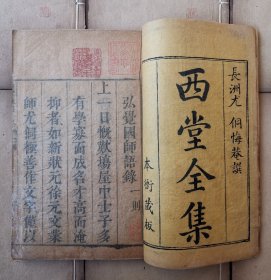 長洲尤侗悔菴譔
西堂全集
本衙藏板
弘覺國師語錄一則
上一日慨歎場屋中士子多
有學寡而成名才高而淹
抑者如新狀元徐元文業
師尤侗極善作文字僅以